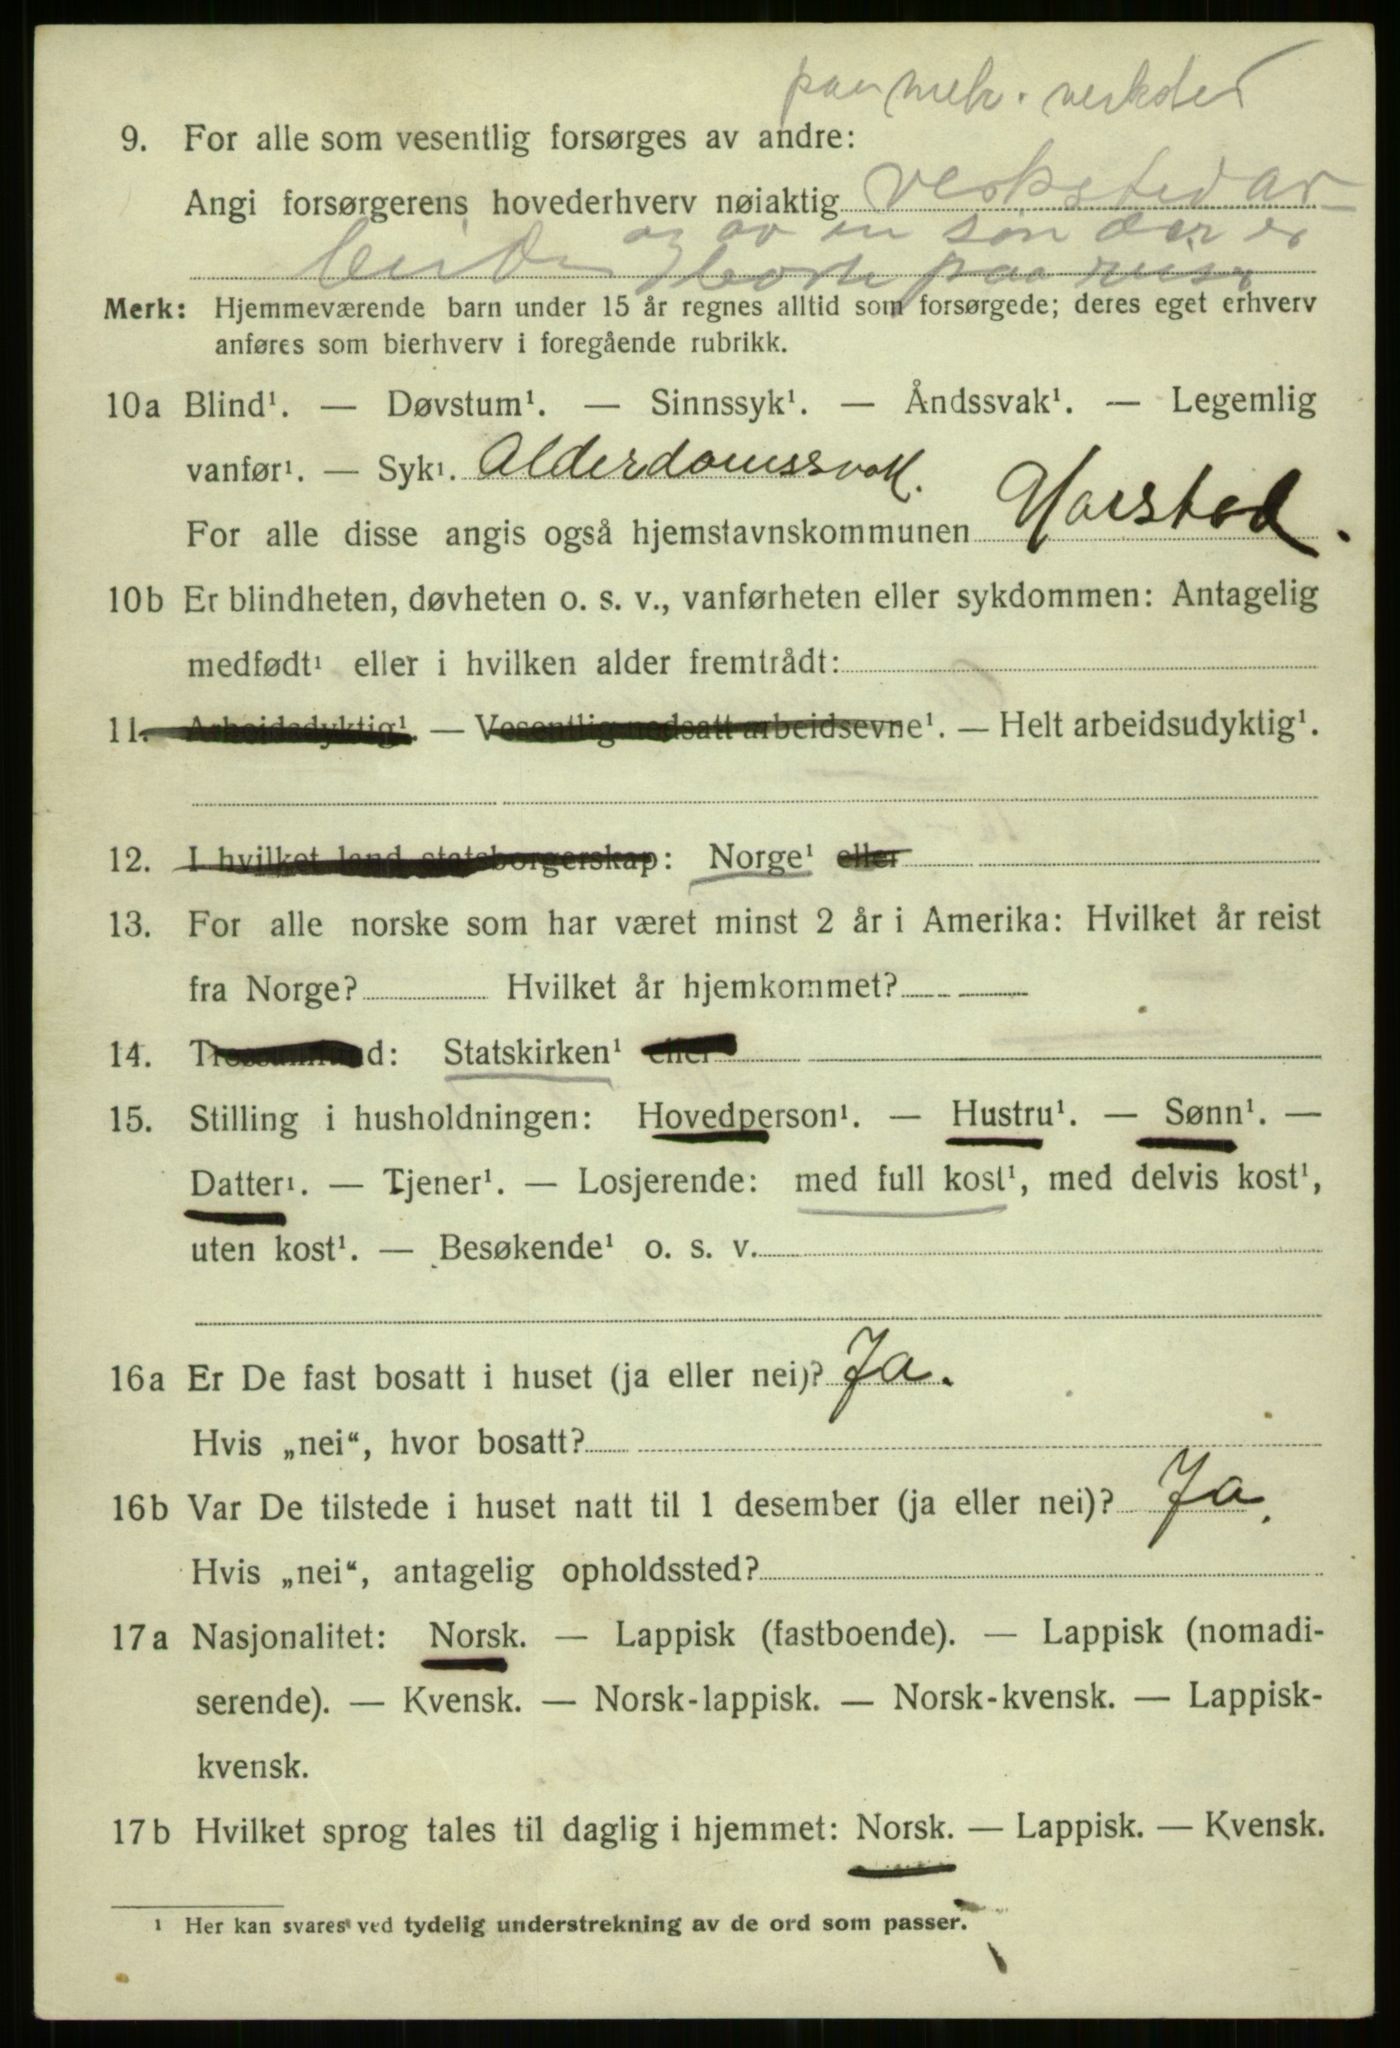 paa mek. verksted
9. For alle som vesentlig forsørges av andre:
Angi forsørgerens hovederhverv nøiaktig verkstedar-
beider og av en søn der er
borte paa reise
Merk: Hjemmeværende barn under 15 år regnes alltid som forsørgede; deres eget erhverv
anføres som bierhverv i foregående rubrikk.
10a Blind¹. — Døvstum¹. — Sinnssyk¹. — Åndssvak¹. — Legemlig
vanfør¹. — Syk¹. Alderdomssvak.
For alle disse angis også hjemstavnskommunen Harstad.
10b Er blindheten, døvheten o. s. v., vanførheten eller sykdommen: Antagelig
medfødt¹ eller i hvilken alder fremtrådt:
11. Arbeidsdyktig¹. — Vesentlig nedsatt arbeidsevne¹. — Helt arbeidsudyktig¹.
12. I hvilket land statsborgerskap: Norge¹ eller
13. For alle norske som har været minst 2 år i Amerika: Hvilket år reist
fra Norge? Hvilket år hjemkommet?
14. Trossamfund: Statskirken¹ eller
15. Stilling i husholdningen: Hovedperson¹. — Hustru¹. — Sønn¹. —
Datter¹. — Tjener¹. — Losjerende: med full kost¹, med delvis kost¹,
uten kost¹. — Besøkende¹ o. s. v.
16a Er De fast bosatt i huset (ja eller nei)? Ja.
Hvis „nei“, hvor bosatt?
16b Var De tilstede i huset natt til 1 desember (ja eller nei)? Ja.
Hvis „nei“, antagelig opholdssted?
17a Nasjonalitet: Norsk. — Lappisk (fastboende). — Lappisk (nomadi-
serende). — Kvensk. — Norsk-lappisk. — Norsk-kvensk. — Lappisk-
kvensk.
17b Hvilket sprog tales til daglig i hjemmet: Norsk. — Lappisk. — Kvensk.
¹ Her kan svares ved tydelig understrekning av de ord som passer.